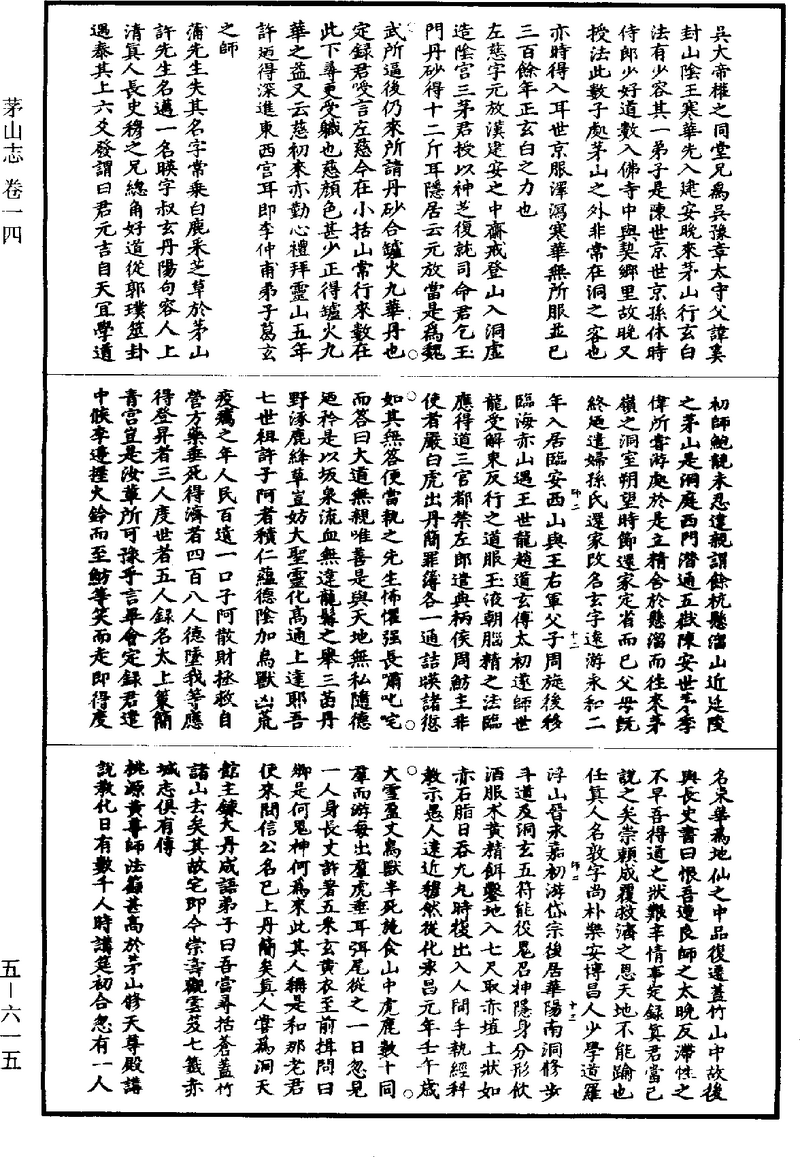 茅山志 卷一四
吳大帝權之同堂兄為吳豫章太守父諱賁
封山陰王寒華先入建安晚來茅山行玄白
法有少容其一弟子是陳世京世京孫休時
侍郎少好道數入佛寺中與契鄉里故晚又
授法此數子處茅山之外非常在洞之客也
亦時得入耳世京服澤瀉寒華無所服並已
三百餘年正玄白之力也
左慈字元放漢建安之中齋戒登山入洞虛
造陰宮三茅君授以神芝復就司命君乞玉
門丹砂得十二斤耳隱居云元放當是為魏
武所逼後仍來所請丹砂合鑪火九華丹也
定錄君喻言左慈今在小括山常行來數在
此下尋更受職也慈顏色甚少正得鑪火九
華之益又云慈初來亦勤心禮拜靈山五年
許迺得深進東西宮耳即李仲甫弟子葛玄
之師
蒲先生失其名字常乘白鹿采芝草於茅山
許先生名邁一名暎字叔玄丹陽句容人上
清真人長史穆之兄總角好道從郭璞筮卦
遇泰其上六爻發謂曰君元吉自天宜學道
初師鮑靚未忍違親謂餘杭懸溜山近延陵
之茅山是洞庭西門潛通五嶽陳安世茅季
偉所嘗游處於是立精舍於懸溜而往來茅
嶺之洞室朔望時節還家定省而已父母既
終迺遣婦孫氏還家改名玄字遠游永和二
年入居臨安西山與王右軍父子周旋後移
師二
十二
臨海赤山遇王世龍趙道玄傳太初遠師世
龍受解束反行之道服玉液朝腦精之法臨
應得道三官都禁左郎遣典柄侯周魴主非
使者嚴白虎出丹簡罪簿各一通詰暎諸愆
如其無答便當執之先生怖懼强長嘯叱咤
而答曰大道無親唯善是與天地無私隨德
迺矜是以坂泉流血無違龍髯之舉三苗丹
野涿鹿絳草豈妨大聖靈化高通上達耶吾
七世祖許子阿者積仁蘊德陰加鳥獸凶荒
疫癘之年人民百遺一口子阿散財拯救自
營方藥垂死得濟者四百八人德墜我等應
得登昇者三人度世者五人錄名太上策簡
青宮豈是汝輩所可豫乎言畢會定錄君遣
中候李邊握火鈴而至魴等笑而走即得度
名東華為地仙之中品復還蓋竹山中故後
與長史書曰恨吾遭良師之太晚反滯性之
不早吾得道之狀艱辛情事定錄真君當已
說之矣崇賴成覆救濟之恩天地不能踰也
任真人名敦字尚朴樂安博昌人少學道羅
師二
十三
浮山晉永嘉初游岱宗後居華陽南洞修步
斗道及洞玄五符能役鬼召神隱身分形飲
酒服朮黃精餌鑿地入七尺取赤埴土狀如
赤石脂日吞九丸時復出入人間手執經科
教示愚人遠近穆然從化永昌元年壬午歲
大雪盈丈鳥獸半死施食山中虎鹿數十同
羣而游每出羣虎垂耳弭尾從之一日忽見
一人身長丈許著五采玄黃衣至前揖問曰
卿是何鬼神何為來此其人稱是和那老君
使來問信公名已上丹簡矣真人嘗為洞天
館主鍊大丹成語弟子曰吾當尋括蒼蓋竹
諸山去矣其故宅即今崇壽觀雲笈七籤赤
城志俱有傳
桃源黃尊師法籙甚高於茅山修天尊殿講
說教化日有數千人時講筵初合忽有一人
五—六一五